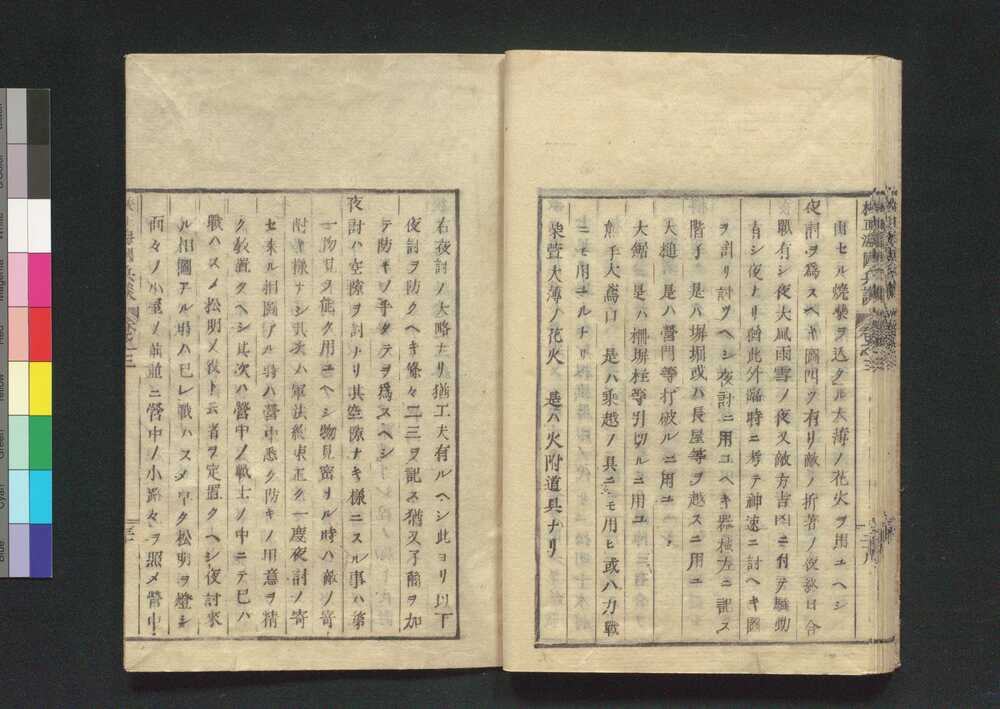 由セル焼柴ヲ込タル大海ノ花火ヲ用ユヘシ
夜討ヲ為スヘキ圖四ツ有リ敵ノ折著ノ夜於日合
戰有シ夜大風雨雪ノ夜又敵方吉凶ニ付テ騒動
有シ夜ナリ猶此外臨時ニ考テ神速ニ討ヘキ圖
ヲ計リ討ツヘシ夜討ニ用ユヘキ器械左ニ記ス
階子 是ハ塀堀或ハ長屋等ヲ越スニ用ユ
大槌 是ハ營門等打破ルニ用ユ
大鋸 是ハ柵塀柱等引切ルニ用ユ
熊手大鳶口 是ハ乗越ノ具ニモ用ヒ或ハ力戰
ニモ用ユルナリ
柴萱大薄ノ花火 是ハ火附道具ナリ
右夜討ノ大略ナリ猶工夫有ルヘシ此ヨリ以下
夜討ヲ防クヘキ條々二三ヲ記ス猶又了簡ヲ加
テ防キノ手タテヲ為スヘシ
夜討ハ空隙ヲ討ナリ其空隙ナキ様ニスル事ハ第
一物見ヲ能ク用ユヘシ物見密リル時ハ敵ノ寄
討キ様ナシ其次ハ軍法約束正ク一度夜討ノ寄
セ来ル相圖アル時ハ營中悉ク防キノ用意ヲ精
ク教置クヘシ其次ハ營中ノ戰士ノ中ニテ已ハ
戰ハスメ松明ノ役ト云者ヲ定置クヘシ夜討來
ル相圖アル時ハ已レ戰ハスメ早ク松明ヲ燈シ
面々ノ小屋ノ前並ニ營中ノ小路々々ヲ照メ營中